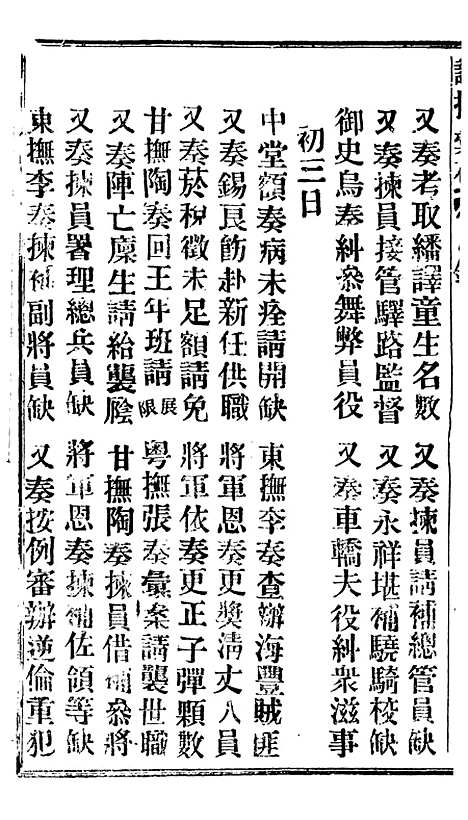 又奏考取繙譯童生名數
又奏揀員請補總管員缺
又奏揀員接管驛路監督
又奏永祥堪補驍騎校缺
御史烏奏糾叅舞弊員役
又奏車轎夫役糾衆滋事
初三日
中堂額奏病未痊請開缺
東撫李奏查辦海豐賊匪
又奏錫良飭赴新任供職
將軍恩奏更獎淸丈人員
又奏菸稅徵未足額請免
將軍依奏更正子彈顆數
甘撫陶奏回王年班請展限
粤撫張奏彙案請襲世職
又奏陣亡廩生請給襲廕
甘撫陶奏揀員借補叅將
又奏揀員署理總兵員缺
將軍恩奏揀補佐領等缺
東撫李奏揀補副將員缺
又奏按例審辦逆倫重犯